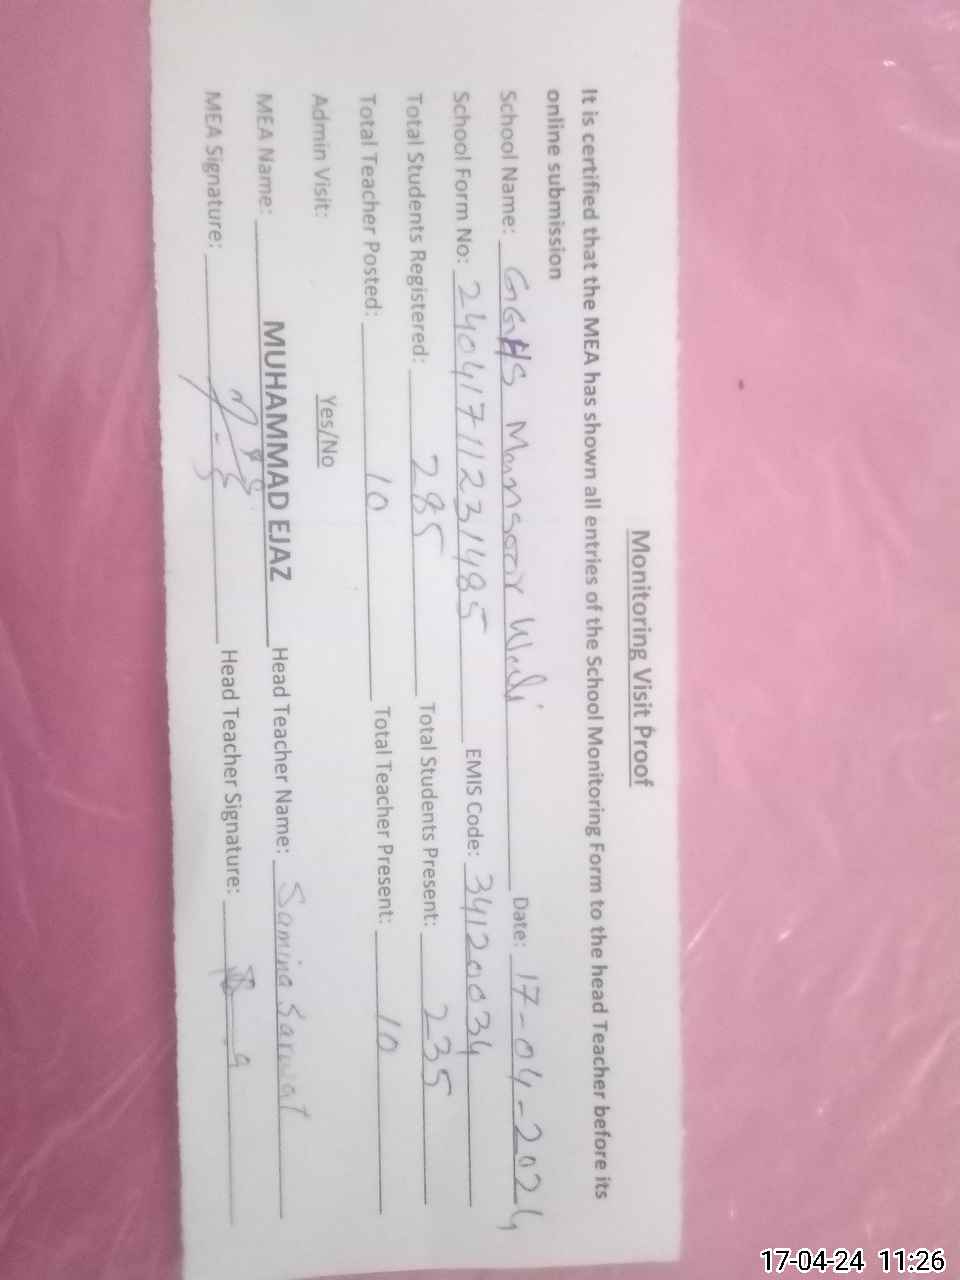 Monitoring Visit Proof
It is certified that the MEA has shown all entries of the School Monitoring Form to the head Teacher before its
online submission
School Name: GGHS Mansoor Wali Date: 17-04-2024
School Form No: 2404171231485 EMIS Code: 34120034
Total Students Registered: 285 Total Students Present: 235
Total Teacher Posted: 10 Total Teacher Present: 10
Admin Visit: Yes/No
MEA Name: MUHAMMAD EJAZ Head Teacher Name: Samina Sarwat
MEA Signature: Head Teacher Signature:
17-04-24 11:26